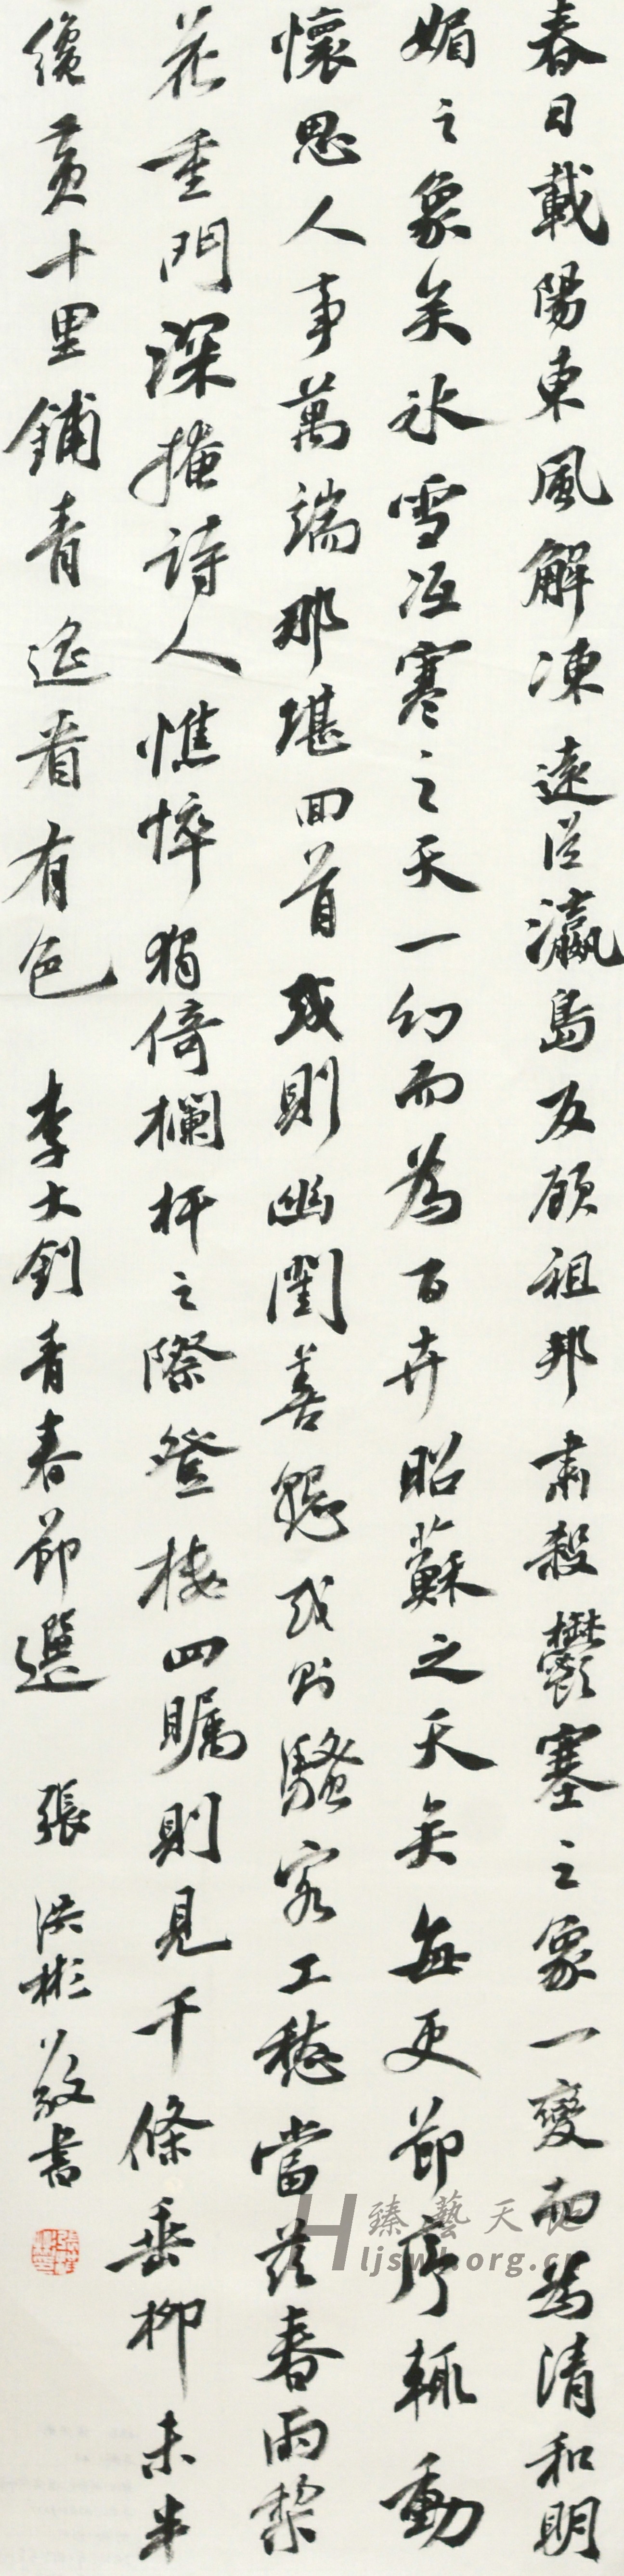 春日載陽東風解凍遠從瀛島反顧祖邦肅殺鬱塞之象一變而為清和明
媚之象矣冰雪冱寒之天一幻而為百卉昭蘇之天矣每更節序輒動
懷思人事萬端那堪回首或則幽閨善怨或則騷客工愁當茲春雨梨
花重門深掩詩人憔悴獨倚欄杆之際登樓四矚則見千條垂柳未半
纔黃十里鋪青遙看有色 李大釗青春節選 張洪彬敬書
臻藝天
ljswh.org.cn